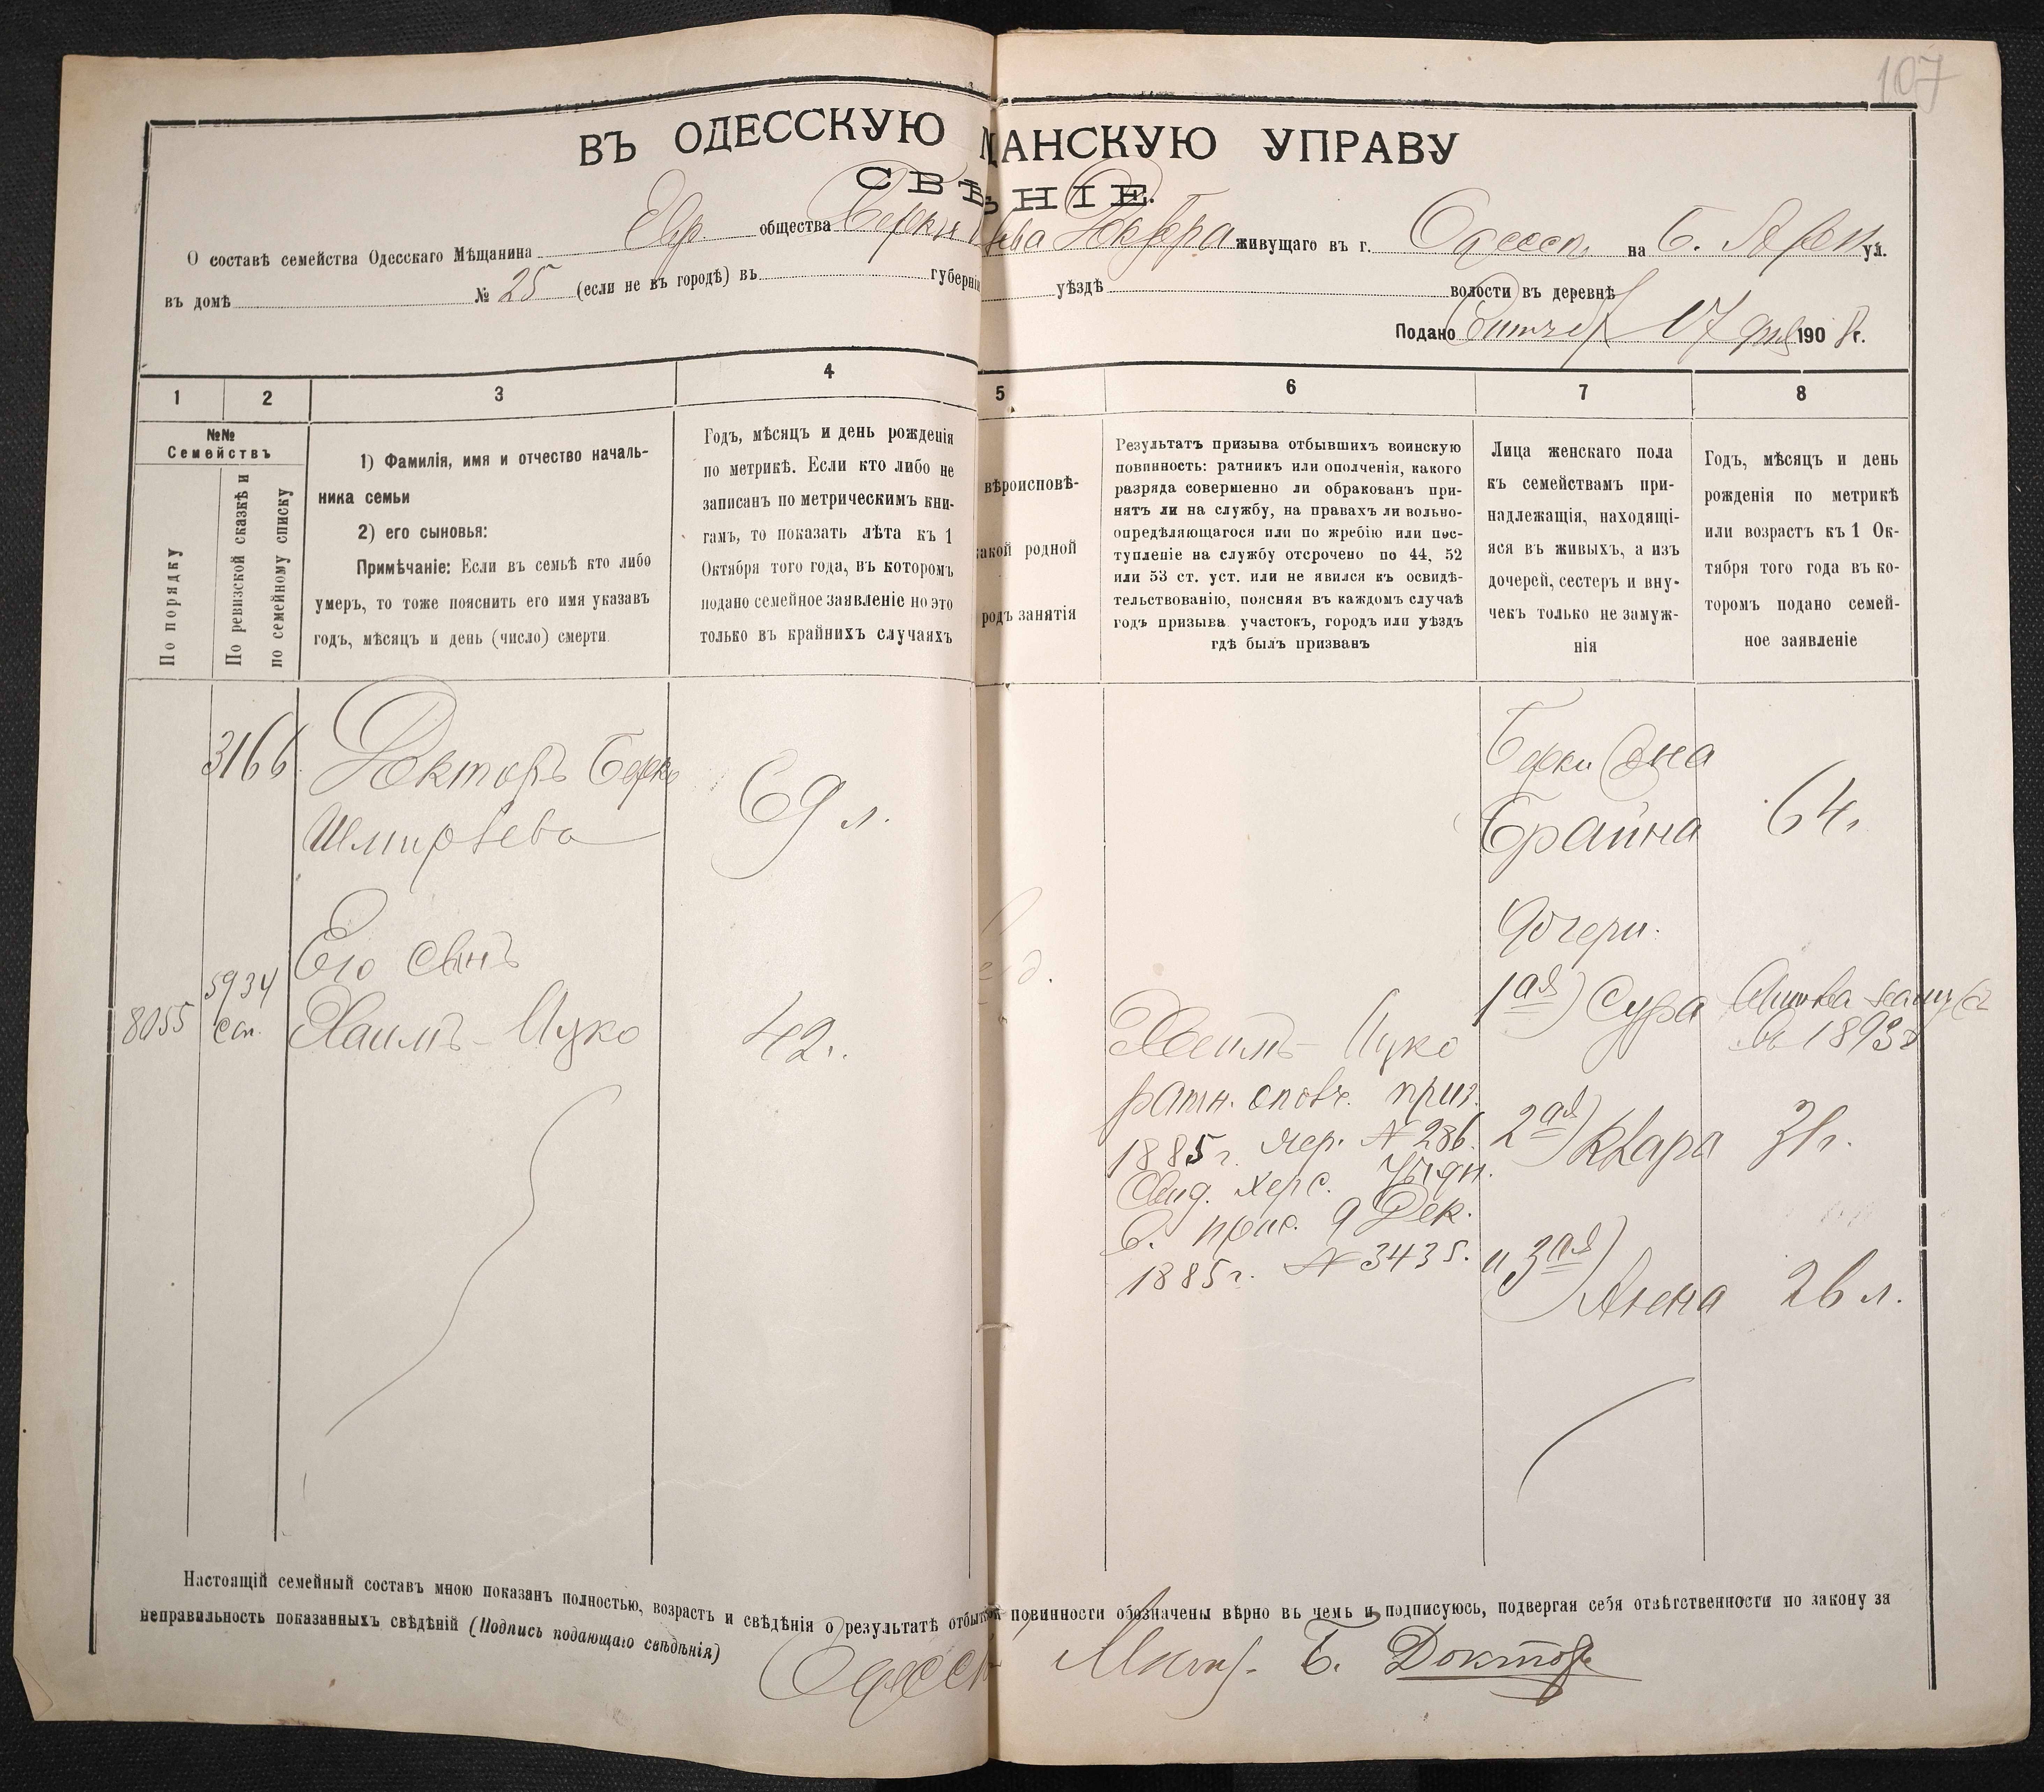 107
ВЪ ОДЕССКУЮ АНСКУЮ УПРАВУ
СВѢ НІЕ.
О составѣ семейства Одесскаго Мѣщанина Евр. общества Берки живущаго въ г. Одессѣ на Б. Арн ул.
въ домѣ № 25 (если не въ городѣ) въ губерніи уѣздѣ волости въ деревнѣ
Подано 17 дня 1908 г.
1 2 3 4 5 6 7 8
№№
Семействъ
По порядку
По ревизской сказкѣ и
по семейному списку
1) Фамилія, имя и отчество началь-
ника семьи
2) его сыновья:
Примѣчаніе: Если въ семьѣ кто либо
умеръ, то тоже пояснить его имя указавъ
годъ, мѣсяцъ и день (число) смерти.
Годъ, мѣсяцъ и день рожденія
по метрикѣ. Если кто либо не
записанъ по метрическимъ кни-
гамъ, то показать лѣта къ 1
Октября того года, въ которомъ
подано семейное заявленіе но это
только въ крайнихъ случаяхъ
вѣроисповѣ-
акой родной
родъ занятія
Результатъ призыва отбывшихъ воинскую
повинность: ратникъ или ополченія, какого
разряда совершенно ли обракованъ при-
нятъ ли на службу, на правахъ ли вольно-
опредѣляющагося или по жребію или пос-
тупленіе на службу отсрочено по 44, 52
или 53 ст. уст. или не явился къ освидѣ-
тельствованію, поясняя въ каждомъ случаѣ
годъ призыва участокъ, городъ или уѣздъ
гдѣ былъ призванъ
Лица женскаго пола
къ семействамъ при-
надлежащія, находящі-
яся въ живыхъ, а изъ
дочерей, сестеръ и вну-
чекъ только не замуж-
нія
Годъ, мѣсяцъ и день
рожденія по метрикѣ
или возрастъ къ 1 Ок-
тября того года въ ко-
торомъ подано семей-
ное заявленіе
3166 Докторъ Берко
69 л.
Берки жена
Брайна 64.
Его сынъ
дочери.
8055 5934 сп. Хаимъ-Ицко 42.
1ая) Сура
въ 1893 г
Хаимъ-Ицко
ратн. ополч. приз.
1885 г. жер. № 286.
Свид. Херс.
2ая) Клара 31 г.
9 Дек.
1885 г. № 3435.
и 3ая)
Анна 26 л.
Настоящій семейный составъ мною показанъ полностью, возрастъ и свѣдѣнія о результатѣ отбытія повинности обозначены вѣрно въ чемъ и подписуюсь, подвергая себя отвѣтственности по закону за
неправильность показанныхъ свѣдѣній (Подпись подающаго свѣдѣнія)
Одесск Мѣщ. Б. Докторъ